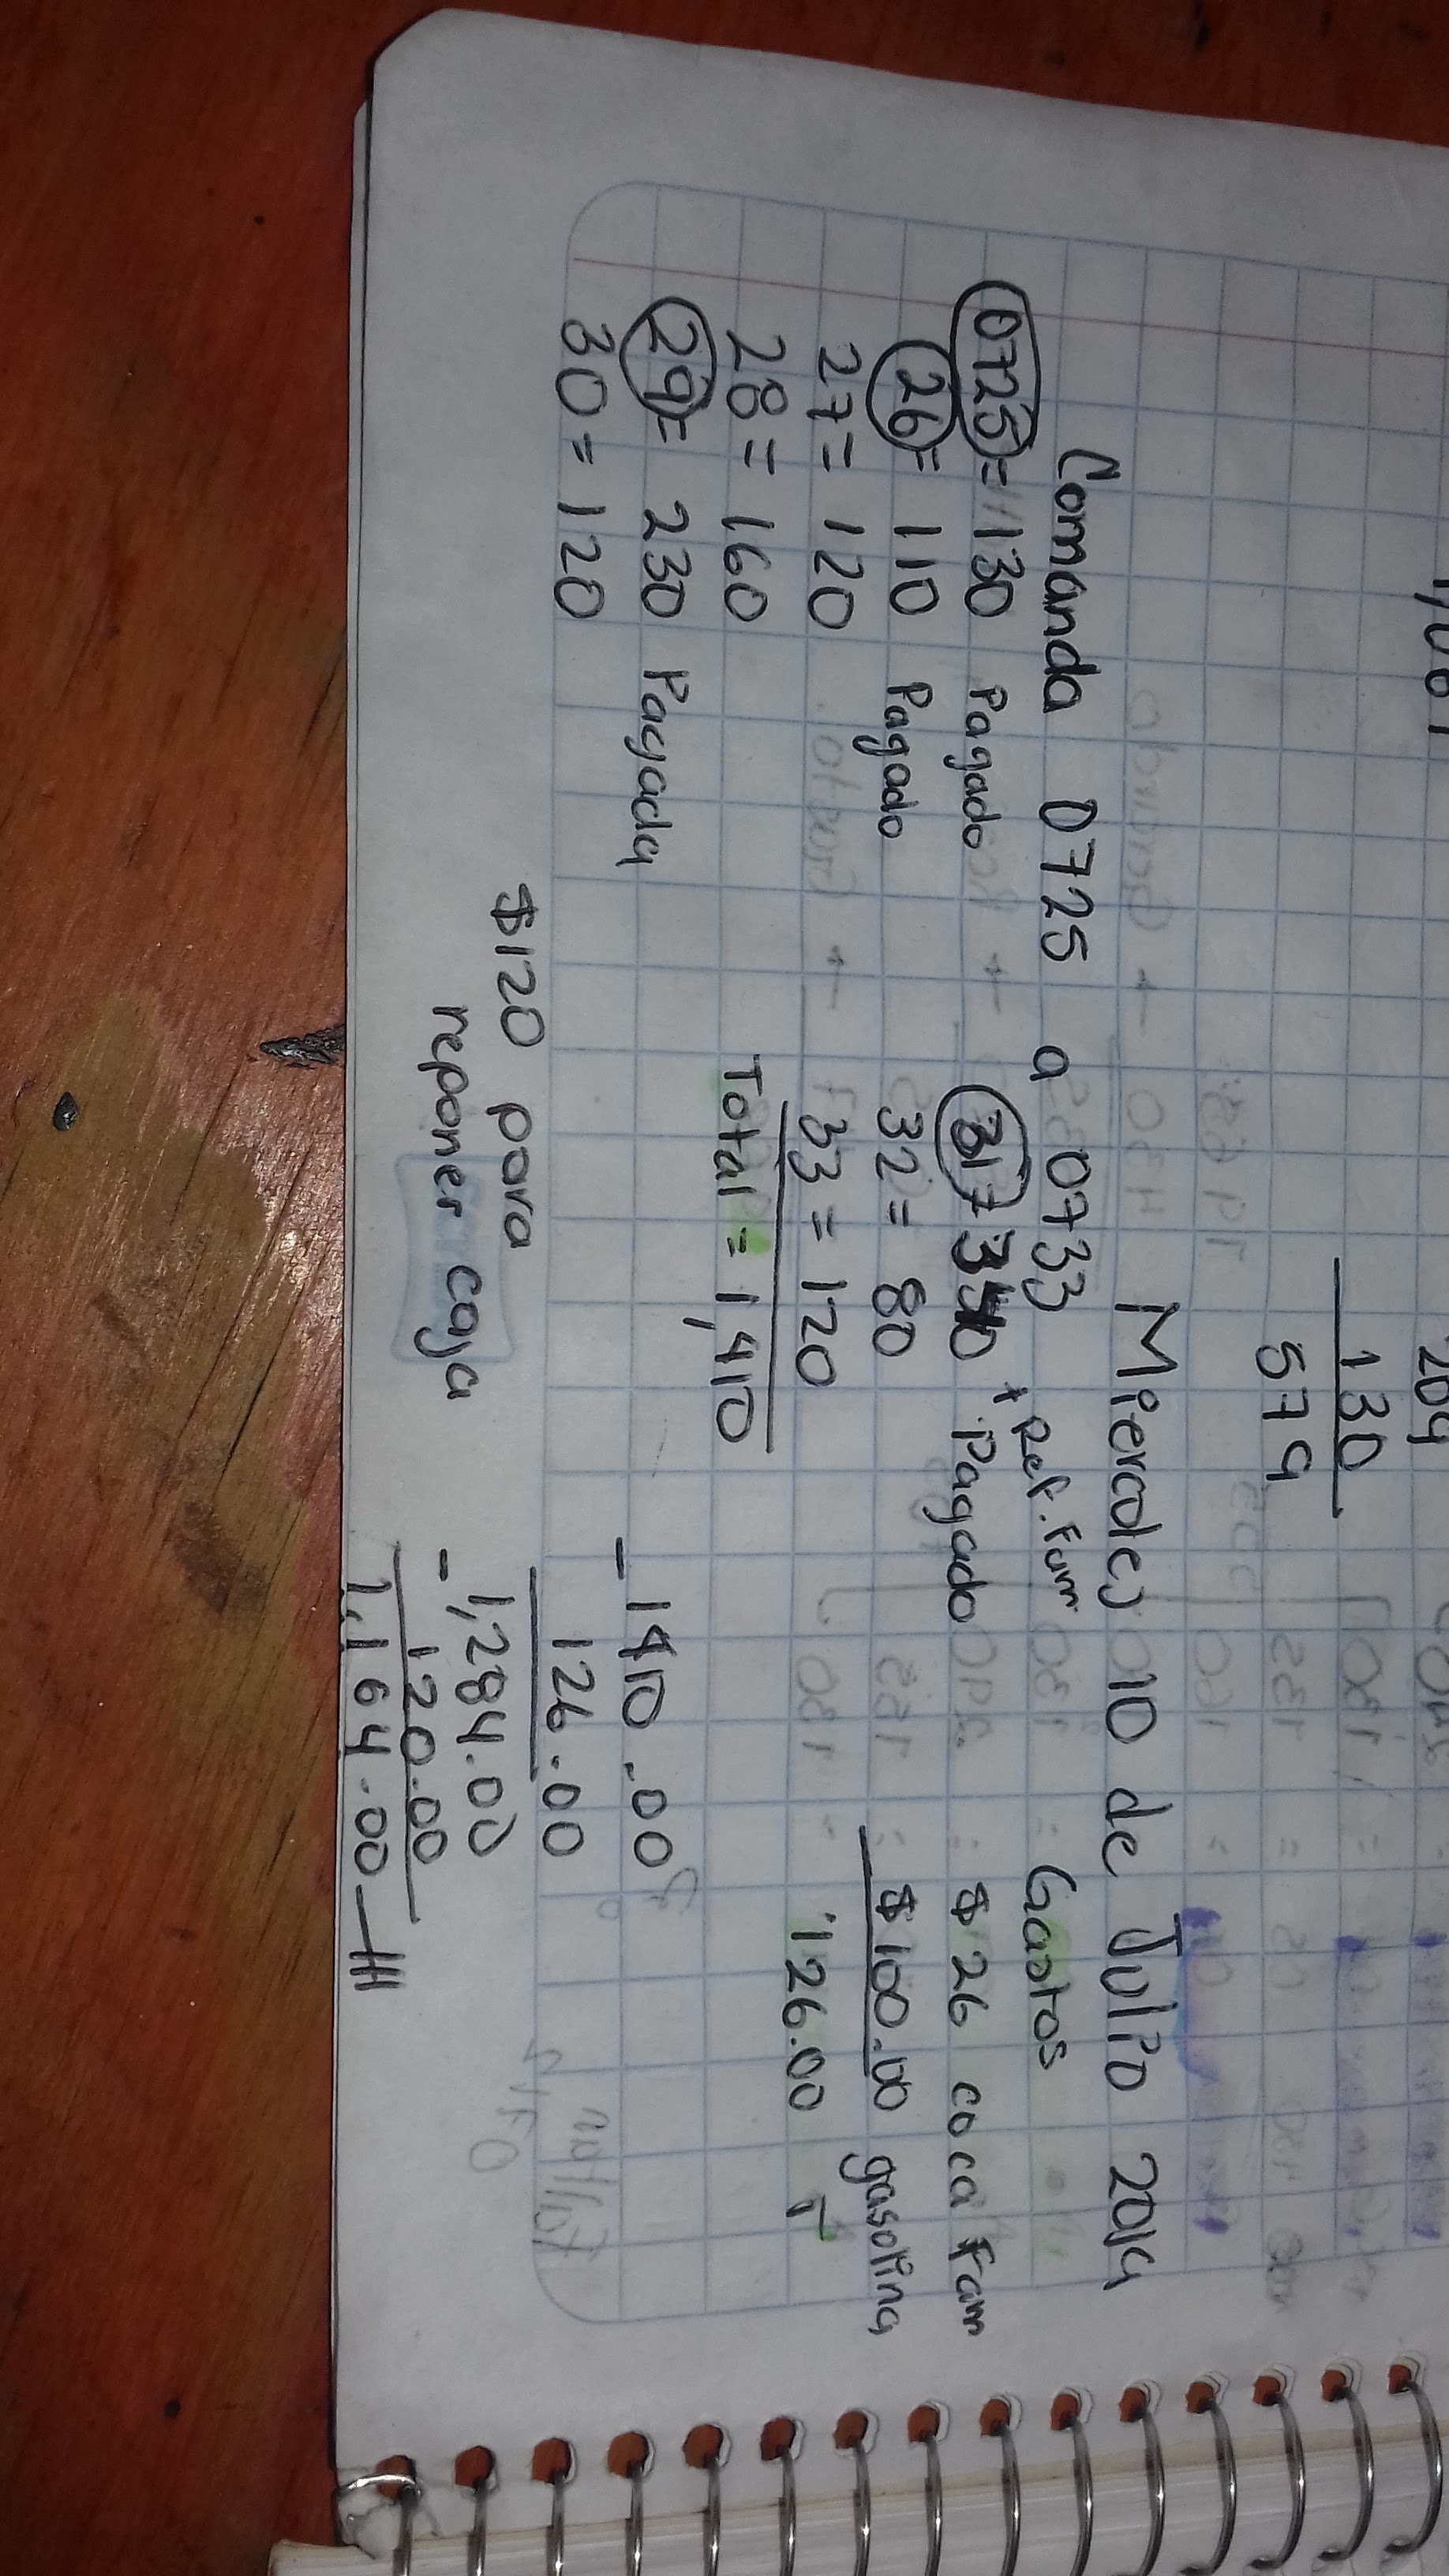 1,061
204
130
579
Miercoles 10 de Julio 2019
Comanda 0725 a 0733
+ Ref. Fam
Gastos
0725 = 130 Pagado
31 = 340 Pagado
$ 26 coca Fam
26 = 110 Pagado
32 = 80
$ 100.00 gasolina
27 = 120
33 = 120
126.00
28 = 160
Total = 1,410
29 = 230 Pagada
- 1410.00
30 = 120
126.00
$120 para
1,284.00
reponer caja
- 120.00
1,164.00